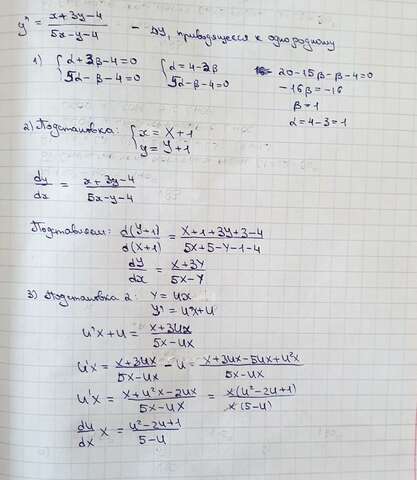 y' = (x+3y-4)/(5x-y-4) - ДУ, приводящееся к однородному
1) {α+3β-4=0 {α=4-3β 20-15β-β-4=0
{5α-β-4=0 {5α-β-4=0 -16β=-16
β=1
α=4-3=1
2) Подстановка: {x=X+1
{y=Y+1
dy/dx = (x+3y-4)/(5x-y-4)
Подставляем: d(Y+1)/d(X+1) = (X+1+3Y+3-4)/(5X+5-Y-1-4)
dY/dX = (X+3Y)/(5X-Y)
3) Подстановка 2: Y=UX
Y'=U'X+U
U'X+U = (X+3UX)/(5X-UX)
U'X = (X+3UX)/(5X-UX) - U = (X+3UX-5UX+U²X)/(5X-UX)
U'X = (X+U²X-2UX)/(5X-UX) = X(U²-2U+1)/X(5-U)
dU/dX X = (U²-2U+1)/(5-U)